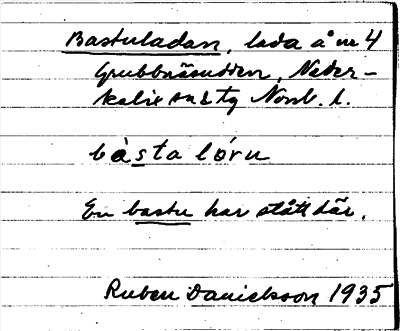 Bastuladan, lada å nr 4
Grubbnäsudden, Neder-
kalix Norrb. l.
bàsta lóru
En bastu har stått där.
Ruben Danielsson 1935